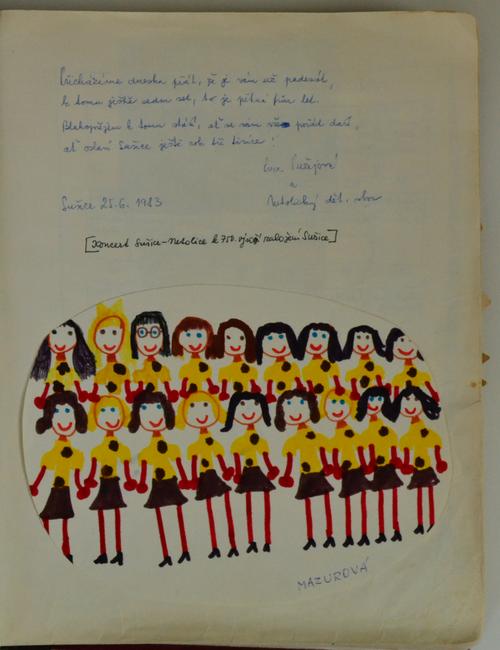 Přicházíme dneska přát, že je vám už padesát,
k tomu ještě sedm set, to je pěkná fůra let.
Blahopřejem k tomu stáří, ať se vám pořád daří,
ať oslaví Sušice ještě rok tři tisíce!
Eva
a
Netolický dět. sbor
Sušice 25.6. 1983
[Koncert Sušice-Netolice k 750. výročí založení Sušice]
MAZUROVÁ